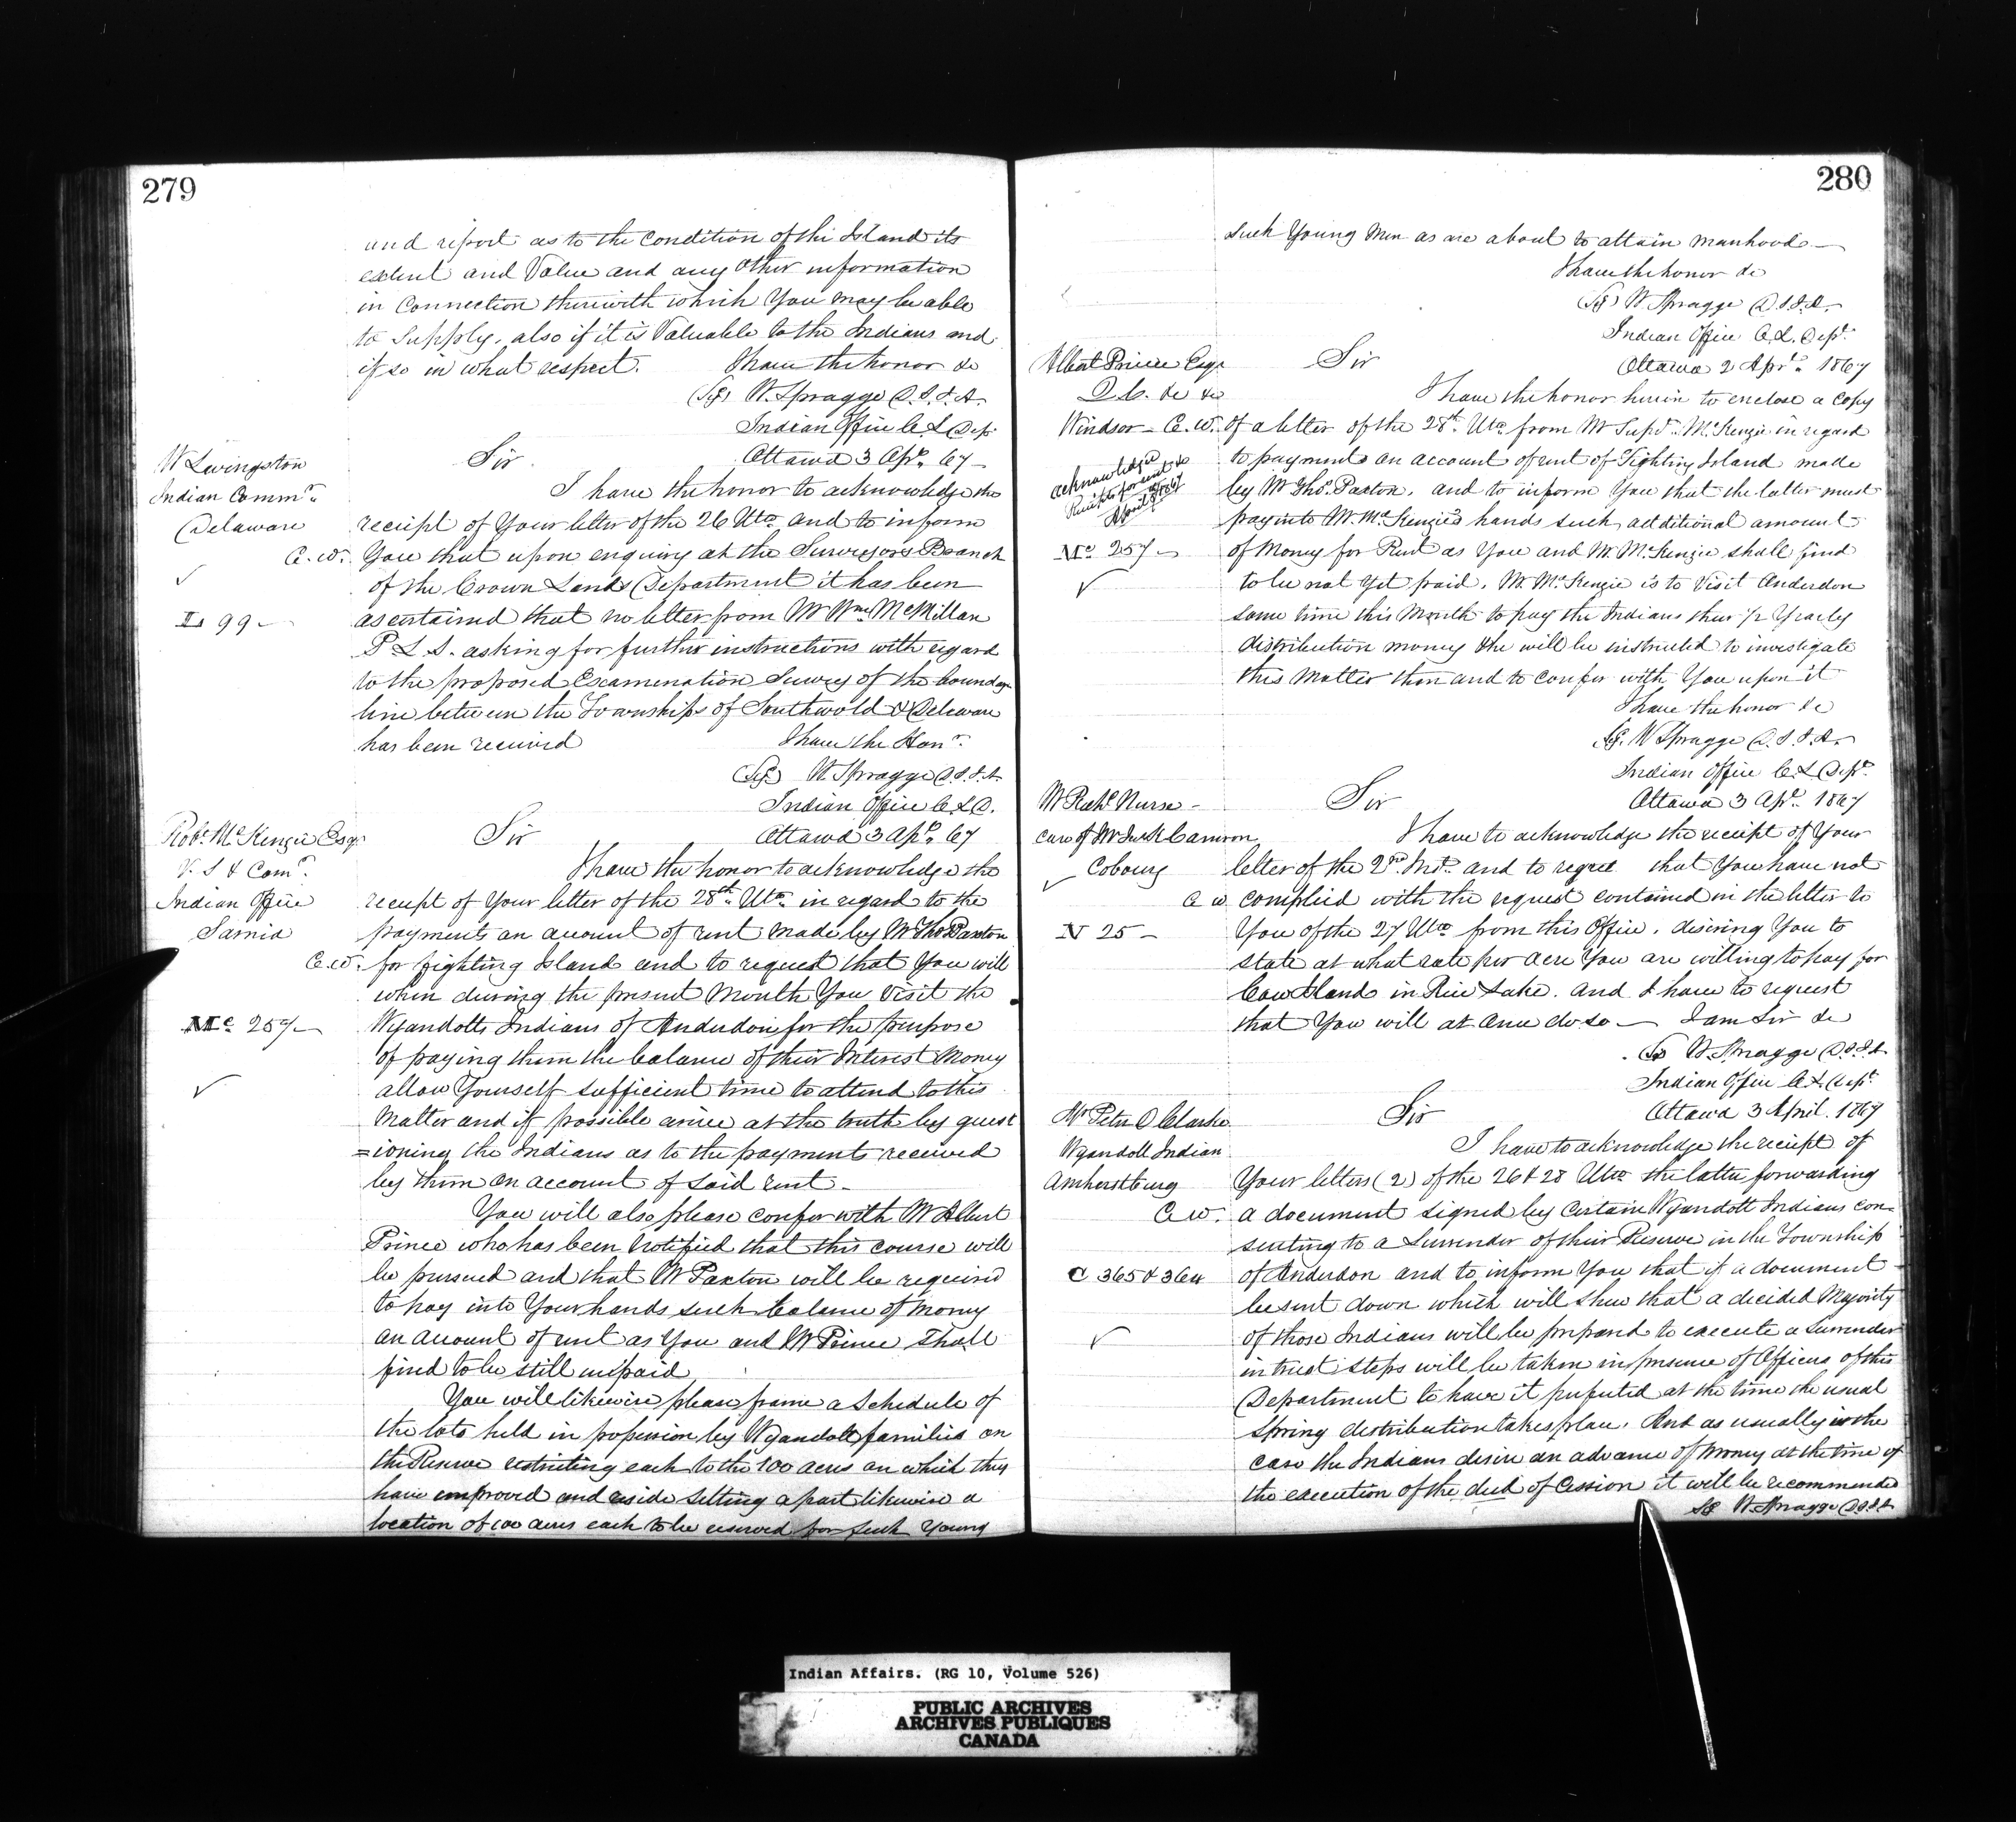 279
and report as to the Condition of the Island its
extent and Value and any Other information
in Connection therewith which You may be able
to Supply. also if it is Valuable to the Indians and
if so in what respect. I have the honor &c
(Sg) W. Spragge D.S.I.A.
Indian Office C L Dep.
W Livingston
Indian Comm.r
Delaware
C.W.
L 99 -
Sir Ottawa 3 Apr. 67 -
I have the honor to acknowledge the
receipt of Your letter of the 26 Ulto and to inform
You that upon enquiry at the Surveyors Branch
of the Crown Lands Department it has been
ascertained that no letter from Mr Wm McMillan
P. L. S. asking for further instructions with regard
to the proposed Examination Survey of the boundary
line between the Townships of Southwold & Delaware
has been received I have the Honr.
(Sg) W Spragge D.S.I.A.
Indian Office C L D.
Robt. McKenzie Esqr
V. S & Comr.
Indian Office
Sarnia
C.W.
Mc 257 -
Sir Ottawa 3 Apl. 67
I have the honor to acknowledge the
receipt of Your letter of the 28th Ulto. in regard to the
payments on account of rent made by Mr Thos Paxton
for fighting Island and to request that You will
when during the present Month You Visit the
Wyandotts Indians of Anderdon for the purpose
of paying them the balance of their Interest Money
allow Yourself sufficient time to attend to this
Matter and if possible arrive at the truth by quest
=ioning the Indians as to the payments received
by them on account of said rent -
You will also please confer with Mr Albert
Prince who has been Notified that this course will
be pursued and that Mr Paxton will be required
to pay into Your hands such balance of Money
on account of rent as You and Mr Prince shall
find to be still unpaid,
You will likewise please frame a Schedule of
the lots held in possession by Wyandott families on
the Reserve restricting each to the 100 acres on which they
have improved and reside setting apart likewise a
location of 100 acres each to be reserved for such Young
280
such Young Men as are about to attain manhood -
I have the honor &c
(Sg) W Spragge D.S.I.A.
Indian Office C.L. Dept.
Albert Prince Esqr
Q.C. &c &c
Windsor - C.W.
Mc 257 -
Sir Ottawa 2 Apr. 1867
I have the honor herein to enclose a Copy
of a letter of the 28th Ulto from Mr Supd. McKenzie in regard
to payments on account of rent of Fighting Island made
by Mr Thos. Paxton. and to inform You that the latter must
pay into Mr. McKenzie's hands such additional amount
of Money for Rent as You and Mr. McKenzie shall find
to be not Yet paid. Mr. McKenzie is to Visit Anderdon
some time this Month to pay the Indians their 1/2 Yearly
distribution money & he will be instructed to investigate
this Matter then and to confer with You upon it
I have the honor &c
Sg. W Spragge D.S.I.A.
Indian Office C L Dept.
Mr Richd. Nurse -
care of Mr Cameron
Cobourg
C W
N 25 -
Sir Ottawa 3 Apl. 1867
I have to acknowledge the receipt of Your
letter of the 2nd Inst. and to regret that You have not
complied with the request contained in the letter to
You of the 27 Ulto from this Office. desiring You to
state at what rate per acre You are willing to pay for
Cow Island in Rice Lake. and I have to request
that You will at once do so - I am Sir &c
Sg W. Spragge D.S.I.A
Indian Office C L. Dept.
Mr Peter D Clarke
Wyandott Indian
Amherstburg
C.W.
C 365 & 364
Sir Ottawa 3 April. 1867
I have to acknowledge the receipt of
Your letters (2) of the 26 & 28 Ulto the latter forwarding
a document signed by certain Wyandott Indians con-
senting to a Surrender of their Reserve in the Township
of Anderdon and to inform You that if a document
be sent down which will shew that a decided Majority
of those Indians will be prepared to execute a Surrender
in trust steps will be taken in presence of Officers of this
Department to have it perfected at the time the usual
Spring distribution takes place. And as usually is the
case the Indians desire an advance of Money at the time of
the execution of the deed of Cession it will be recommended
Sg W. Spragge D.S.I.A
Indian Affairs. (RG 10, Volume 526)
PUBLIC ARCHIVES
ARCHIVES PUBLIQUES
CANADA